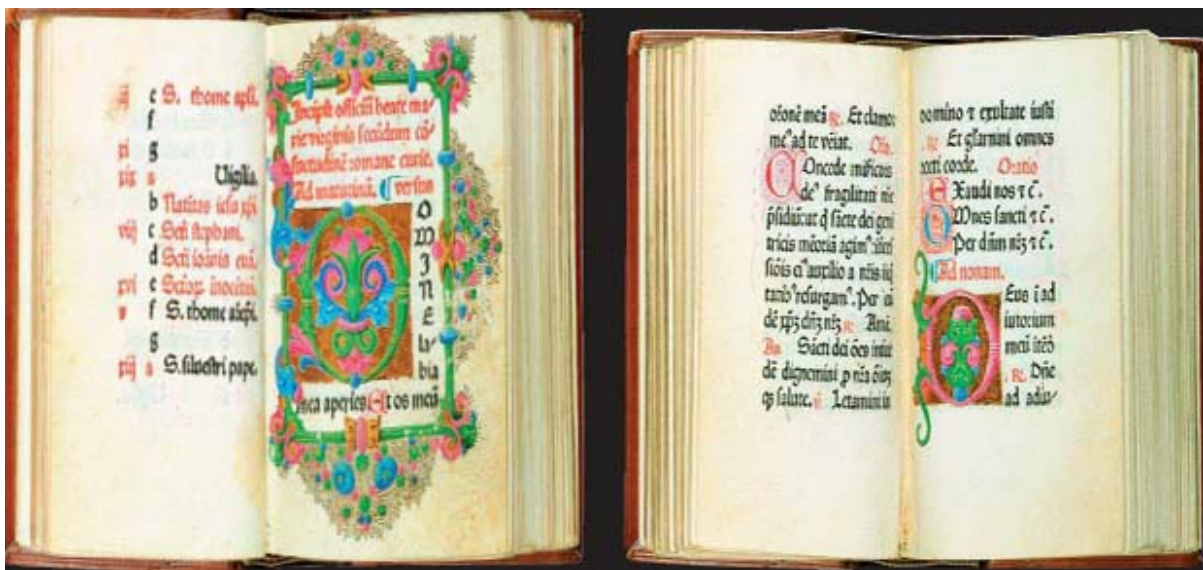 iij e S. thome apli.
f
xi g
xix a Vigilia.
b Natiuitas iesu xpi.
viij c Scti stephani.
d Scti ioānis euā.
xvi e Sctorum inocētiū.
v f S. thome archiepi.
g
xiij a S. siluestri pape.
Incipit officiū beate ma/
rie virginis secūdum cō/
suetudinē romane curie.
Ad matutinū. versus
O
M
I
N
E
la/
bia
mea aperies Et os meū
orationē meā ℟. Et clamor
meus ad te veniat. Oro.
COncede misericors
deus fragilitati nre
presidiū ut qui sacte dei geni
tricis memoriā agimus interce
ssiōis eius auxilio a nris iniq
tatibus resurgamus. Per eū
dē xpm dnm nrm ℟. Amē.
An. Sācti dei ōēs inter
cedē dignemini p nra ōiūq
qs salute. ℣ Letamini in
domino ⁊ exultate iusti
. ℟. Et gloriamini omnes
recti corde. Oratio
EXaudi nos ⁊ c̄.
OMnes sancti ⁊ c̄.
Per dnm nrm ⁊ c̄.
Ad nonam.
DEus i ad
iutorium
meū itēd
. ℟. Dne
ad adiu/